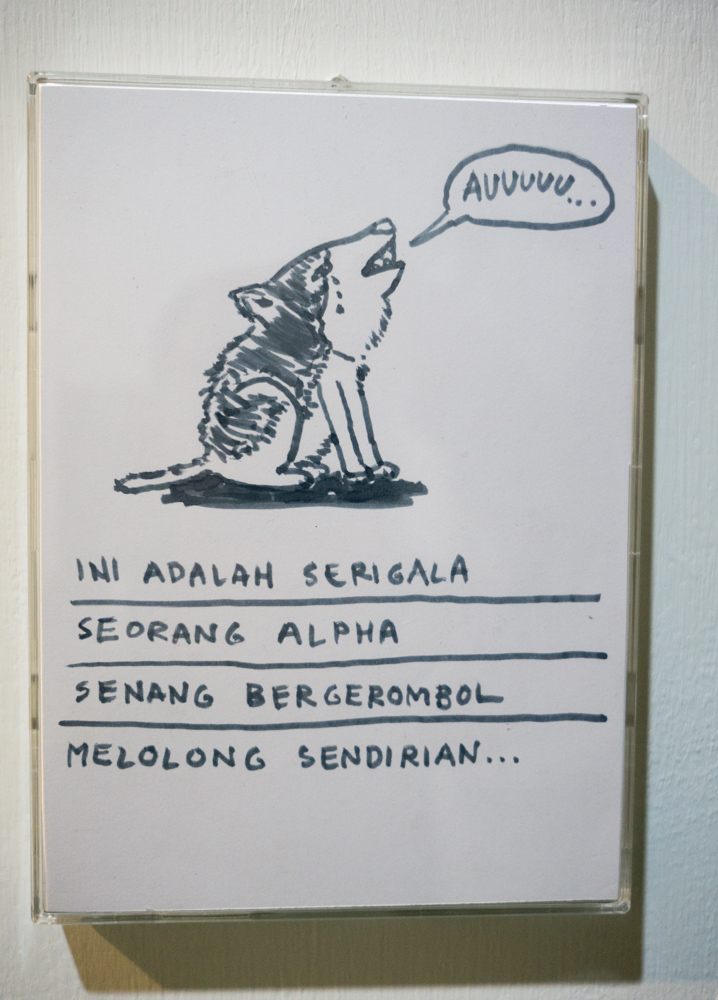 AUUUUU...
INI ADALAH SERIGALA
SEORANG ALPHA
SENANG BERGEROMBOL
MELOLONG SENDIRIAN...